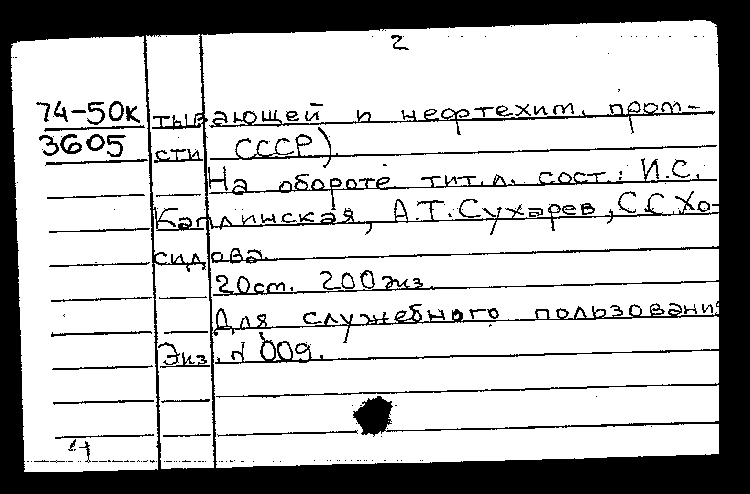 2
74-50к тывающей и нефтехим. пром-
3605 сти СССР)
На обороте тит.л. сост.: И.С.
Каплинская, А.Т.Сухарев, С.С.Хо-
сидова.
20см. 200экз.
Для служебного пользования
Экз. № 009.